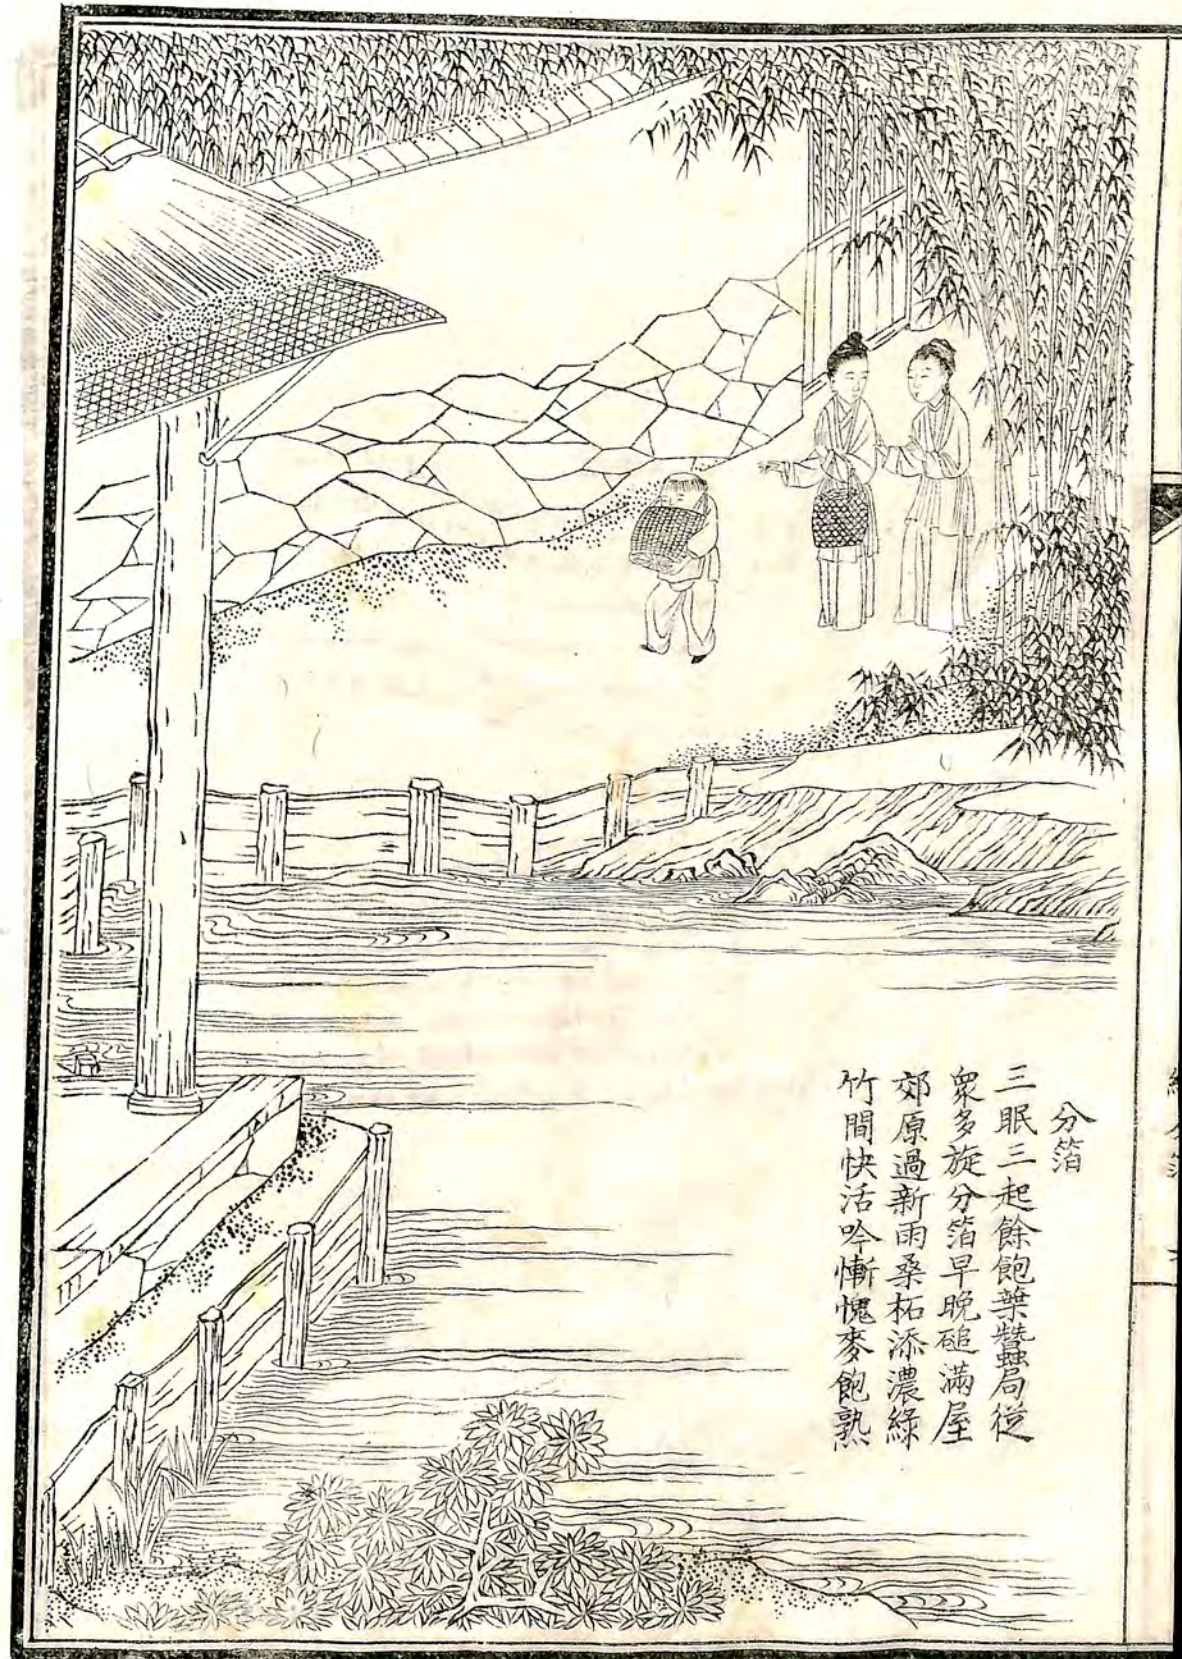 分箔
三眠三起餘飽葉蠶局促
衆多旋分箔早晚磓滿屋
郊原過新雨桑柘添濃綠
竹間快活吟慚愧麥飽熟